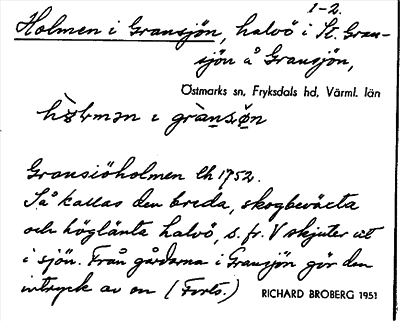 1-2.
Holmen i Gransjön, halvö i St. Gran-
sjön å Gransjön,
Östmarks sn, Fryksdals hd, Värml. län
i
Gransiöholmen lh 1752.
Så kallas den breda, skogbeväxta
och höglänta halvö, s. fr. V skjuter ut
i sjön. Från gårdarna i Gransjön gör den
intryck av en (Forts.)
RICHARD BROBERG 1951